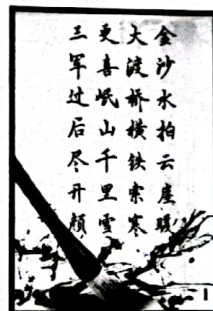 金沙水拍云崖暖
大渡桥横铁索寒
更喜岷山千里雪
三军过后尽开颜